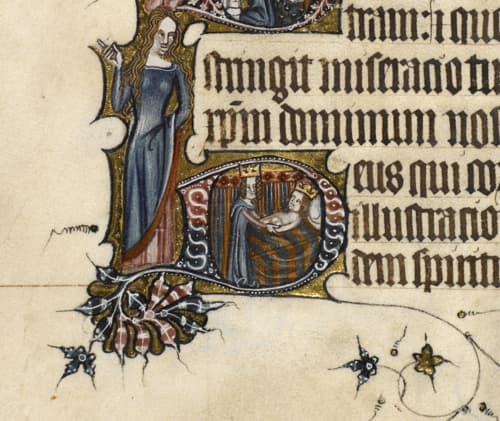 tram: ⁊ qui
stringit miseratio tu
xp̄m dominum no
eus qui co
illustratio
dem spiritu